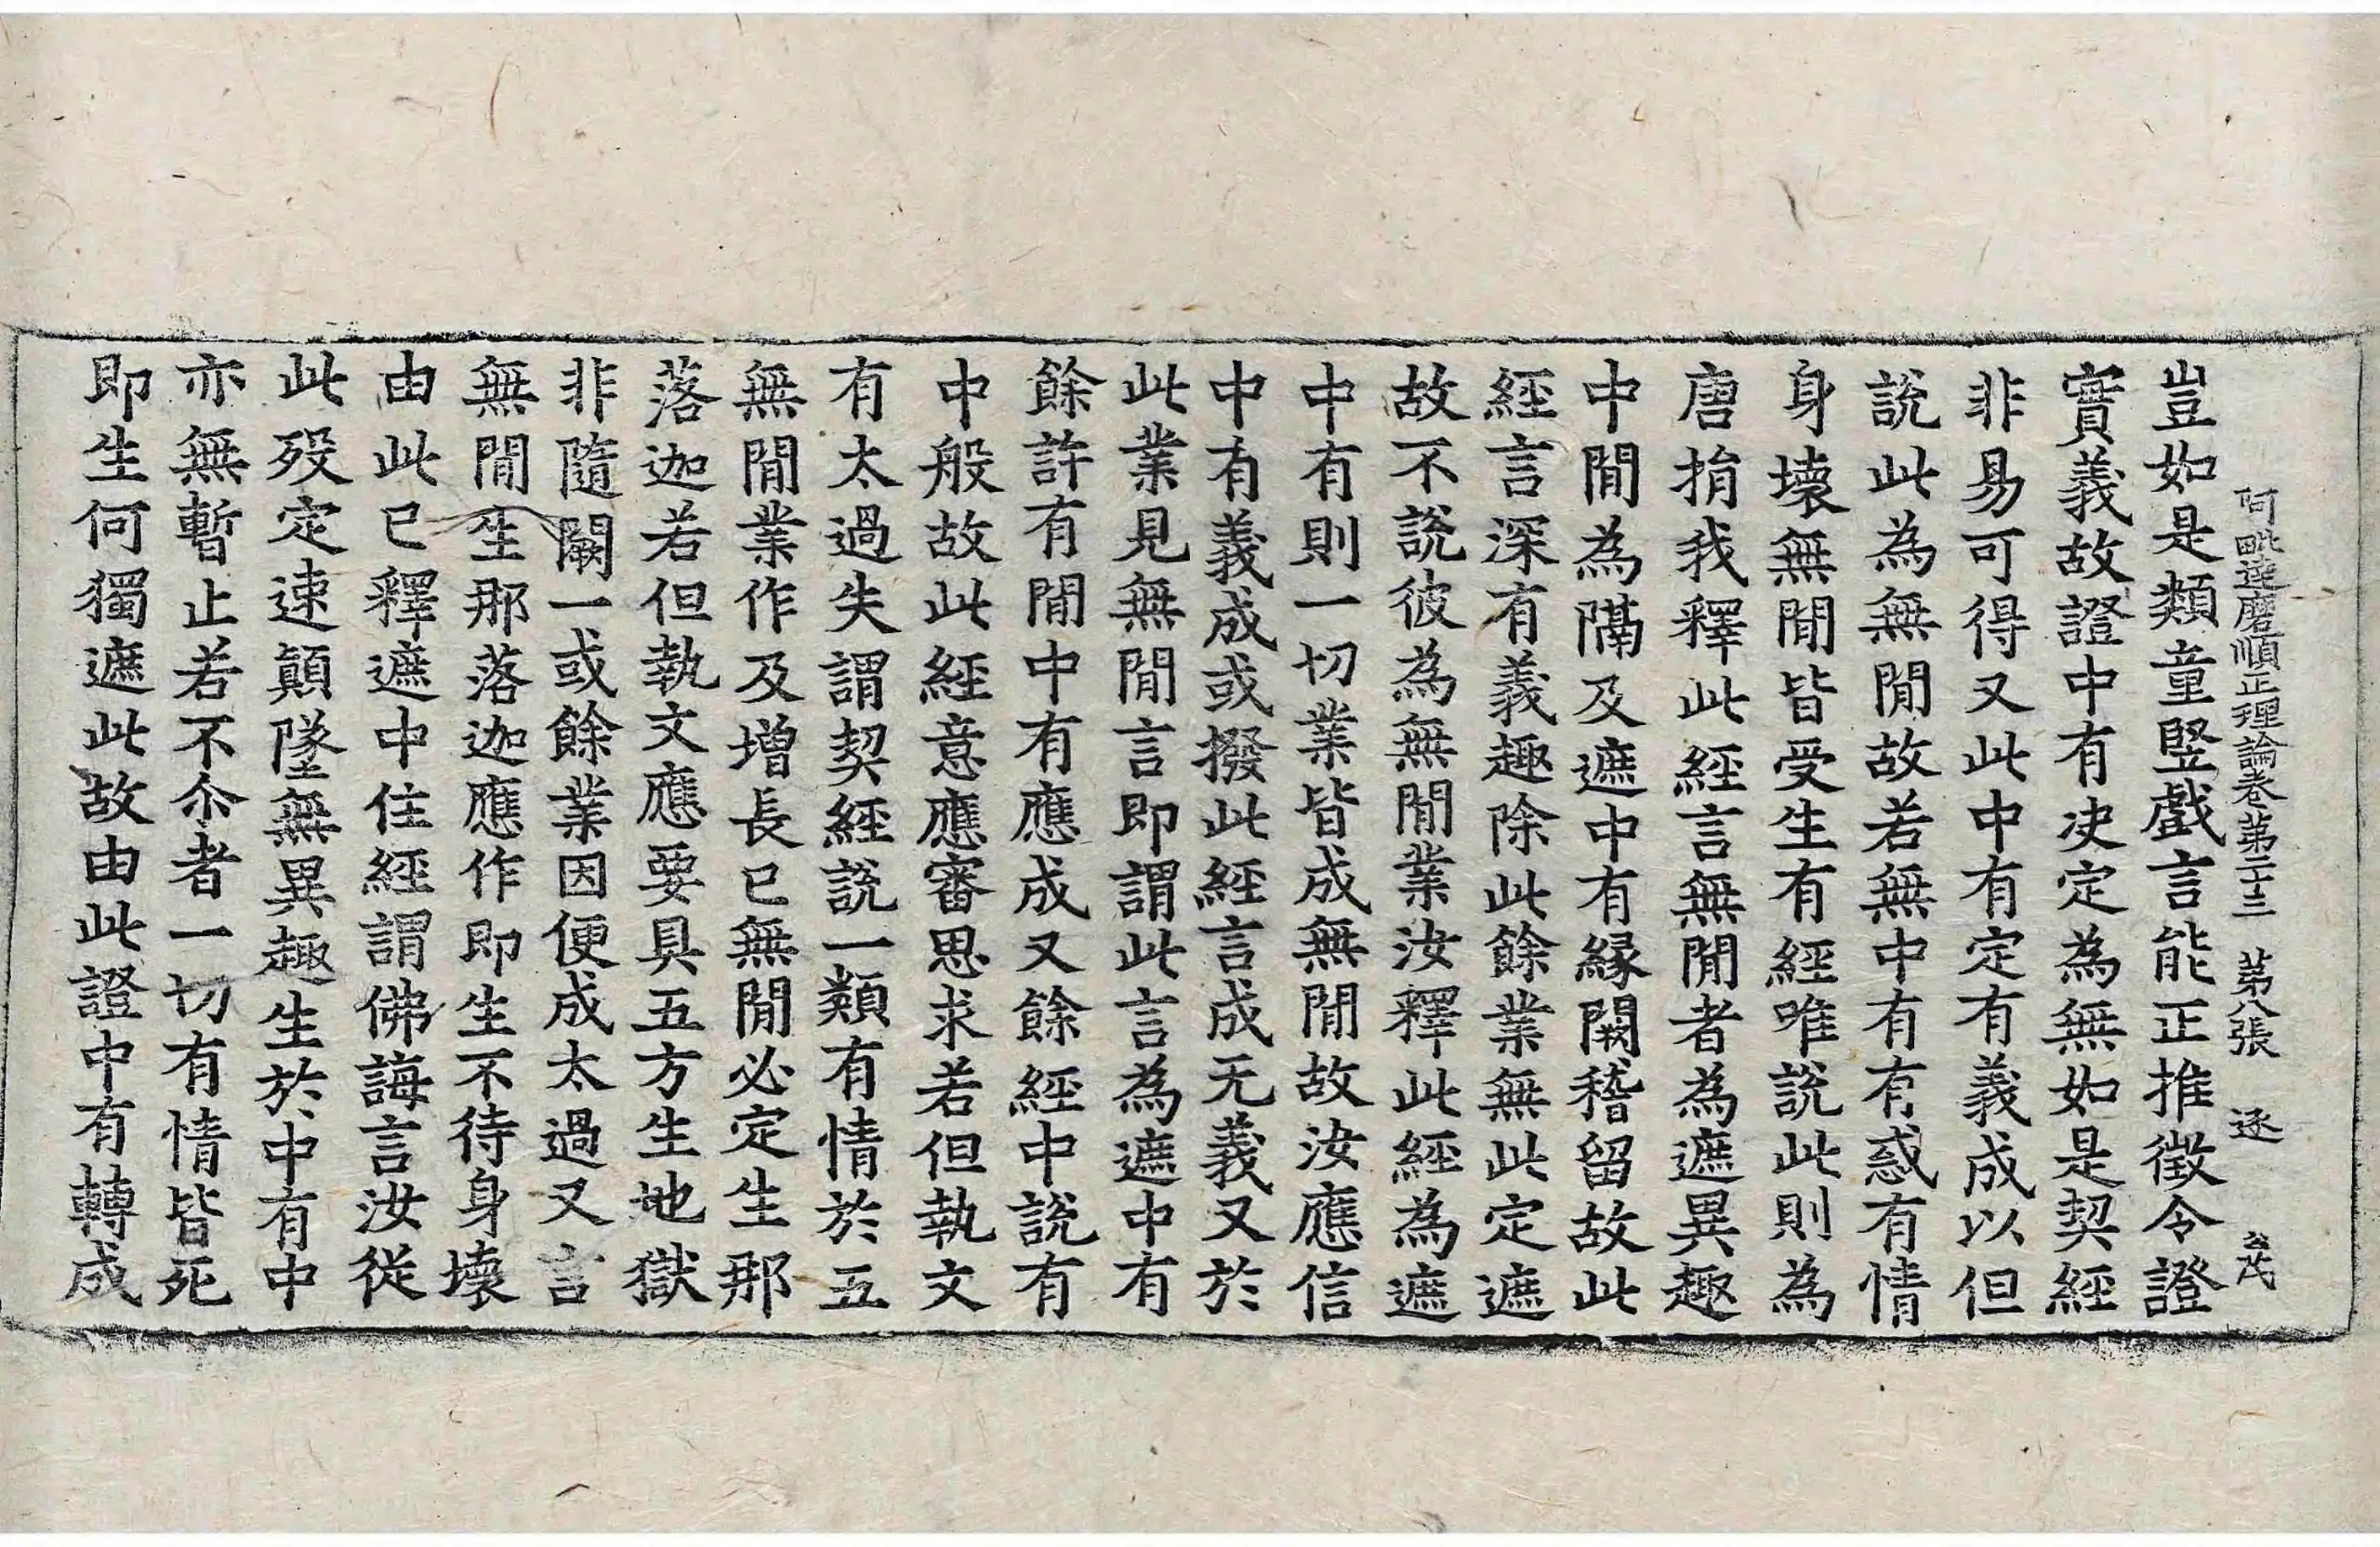 阿毗達磨順正理論卷第二十三　第八張　逐　公茂
豈如是類童竪戲言能正推徵令證
實義故證中有決定為無如是契經
非易可得又此中有定有義成以但
說此為無閒故若無中有有惑有情
身壞無閒皆受生有經唯說此則為
唐捐我釋此經言無閒者為遮異趣
中閒為隔及遮中有緣闕稽留故此
經言深有義趣除此餘業無此定遮
故不說彼為無閒業汝釋此經為遮
中有則一切業皆成無閒故汝應信
中有義成或撥此經言成无義又於
此業見無閒言即謂此言為遮中有
餘許有閒中有應成又餘經中說有
中般故此經意應審思求若但執文
有太過失謂契經說一類有情於五
無閒業作及增長已無閒必定生那
落迦若但執文應要具五方生地獄
非隨闕一或餘業因便成太過又言
無閒生那落迦應作即生不待身壞
由此已釋遮中住經謂佛誨言汝從
此歿定速顛墜無異趣生於中有中
亦無暫止若不尒者一切有情皆死
即生何獨遮此故由此證中有轉成